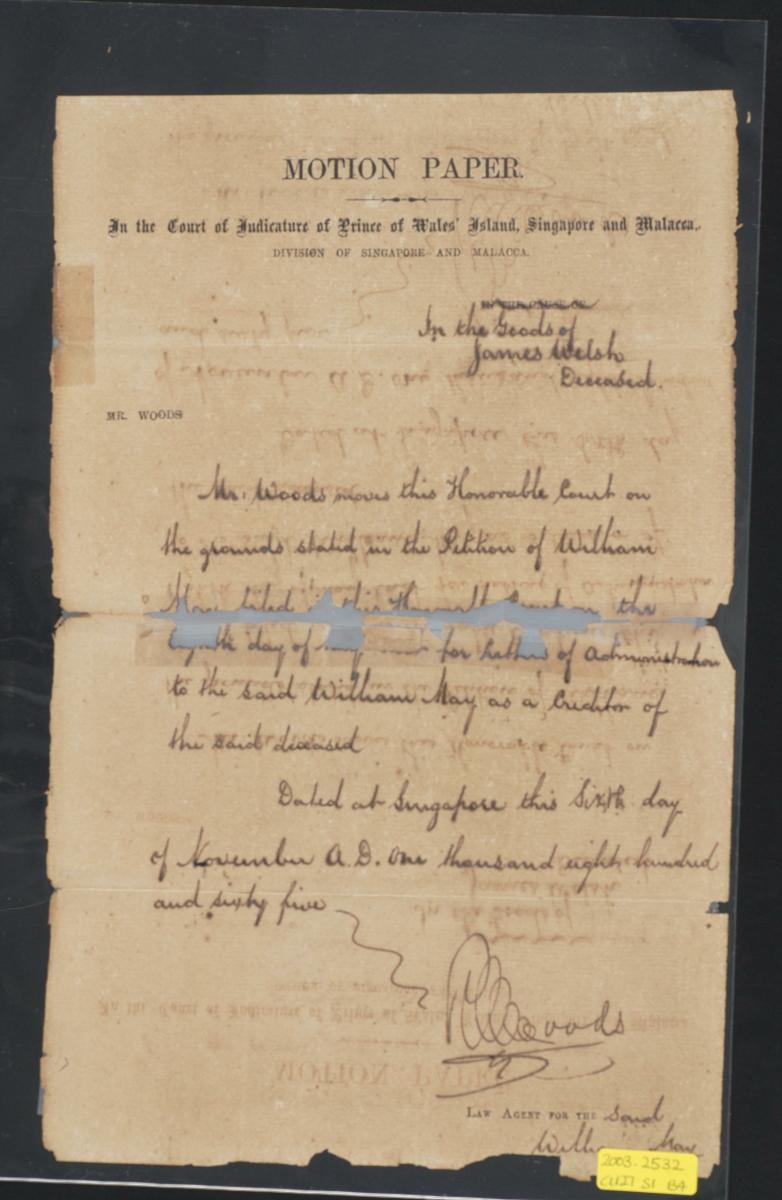 MOTION PAPER.
In the Court of Judicature of Prince of Wales' Island, Singapore and Malacca.
DIVISION OF SINGAPORE AND MALACCA.
IN THE CAUSE OF
In the Goods of
James Welsh
Deceased.
MR. WOODS
Mr: Woods moves this Honorable Court on
the grounds stated in the Petition of William
May filed in this Honorable Court on the
day of for Letters of Administration
to the said William May as a Creditor of
the said deceased
Dated at Singapore this Sixth day
of November A.D. One thousand eight hundred
and sixty five
Woods
LAW AGENT FOR THE said
William May
2003-2532